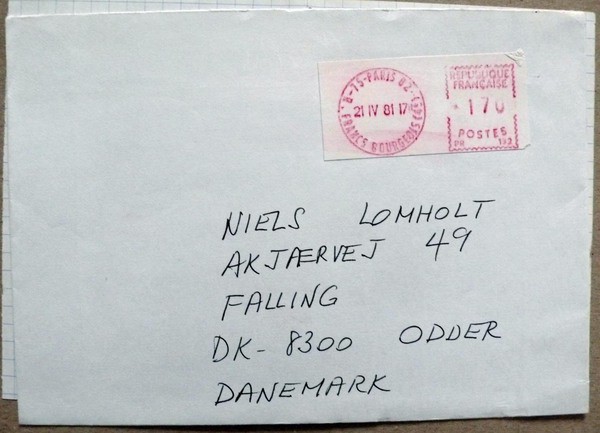 75-PARIS 82
21 IV 81 17
R. FRANCS BOURGEOIS (3E)
REPUBLIQUE
FRANCAISE
170
POSTES
PR 192
NIELS LOMHOLT
AKJÆRVEJ 49
FALLING
DK-8300 ODDER
DANEMARK